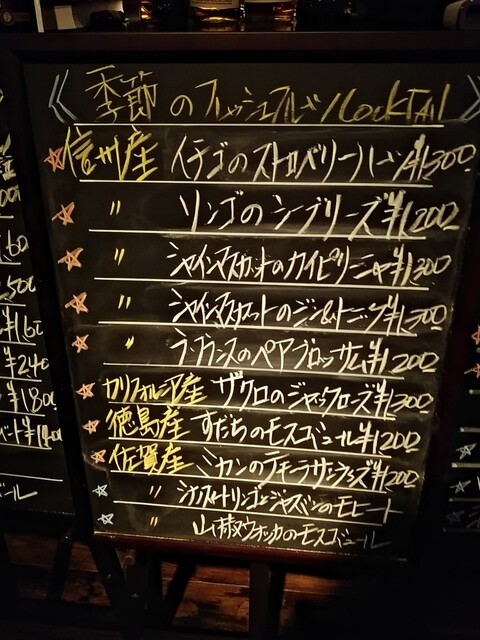 《季節のフレッシュフルーツCockTAil》
☆信州産 イチゴのストロベリーハーバー ¥1300
☆ 〃 リンゴのシーブリーズ ¥1200
☆ 〃 シャインマスカットのカイピリーニャ ¥1300
☆ 〃 シャインマスカットのジン&トニック ¥1300
☆ 〃 ラ・フランスのペアブロッサム ¥1200
☆カリフォルニア産 ザクロのジャックローズ ¥1300
☆徳島産 すだちのモスコミュール ¥1200
☆佐賀産 ミカンのテキーラサンライズ ¥1200
☆ 〃 リンゴとジャスミンのモヒート
☆ 〃 山椒ウォッカのモスコミュール